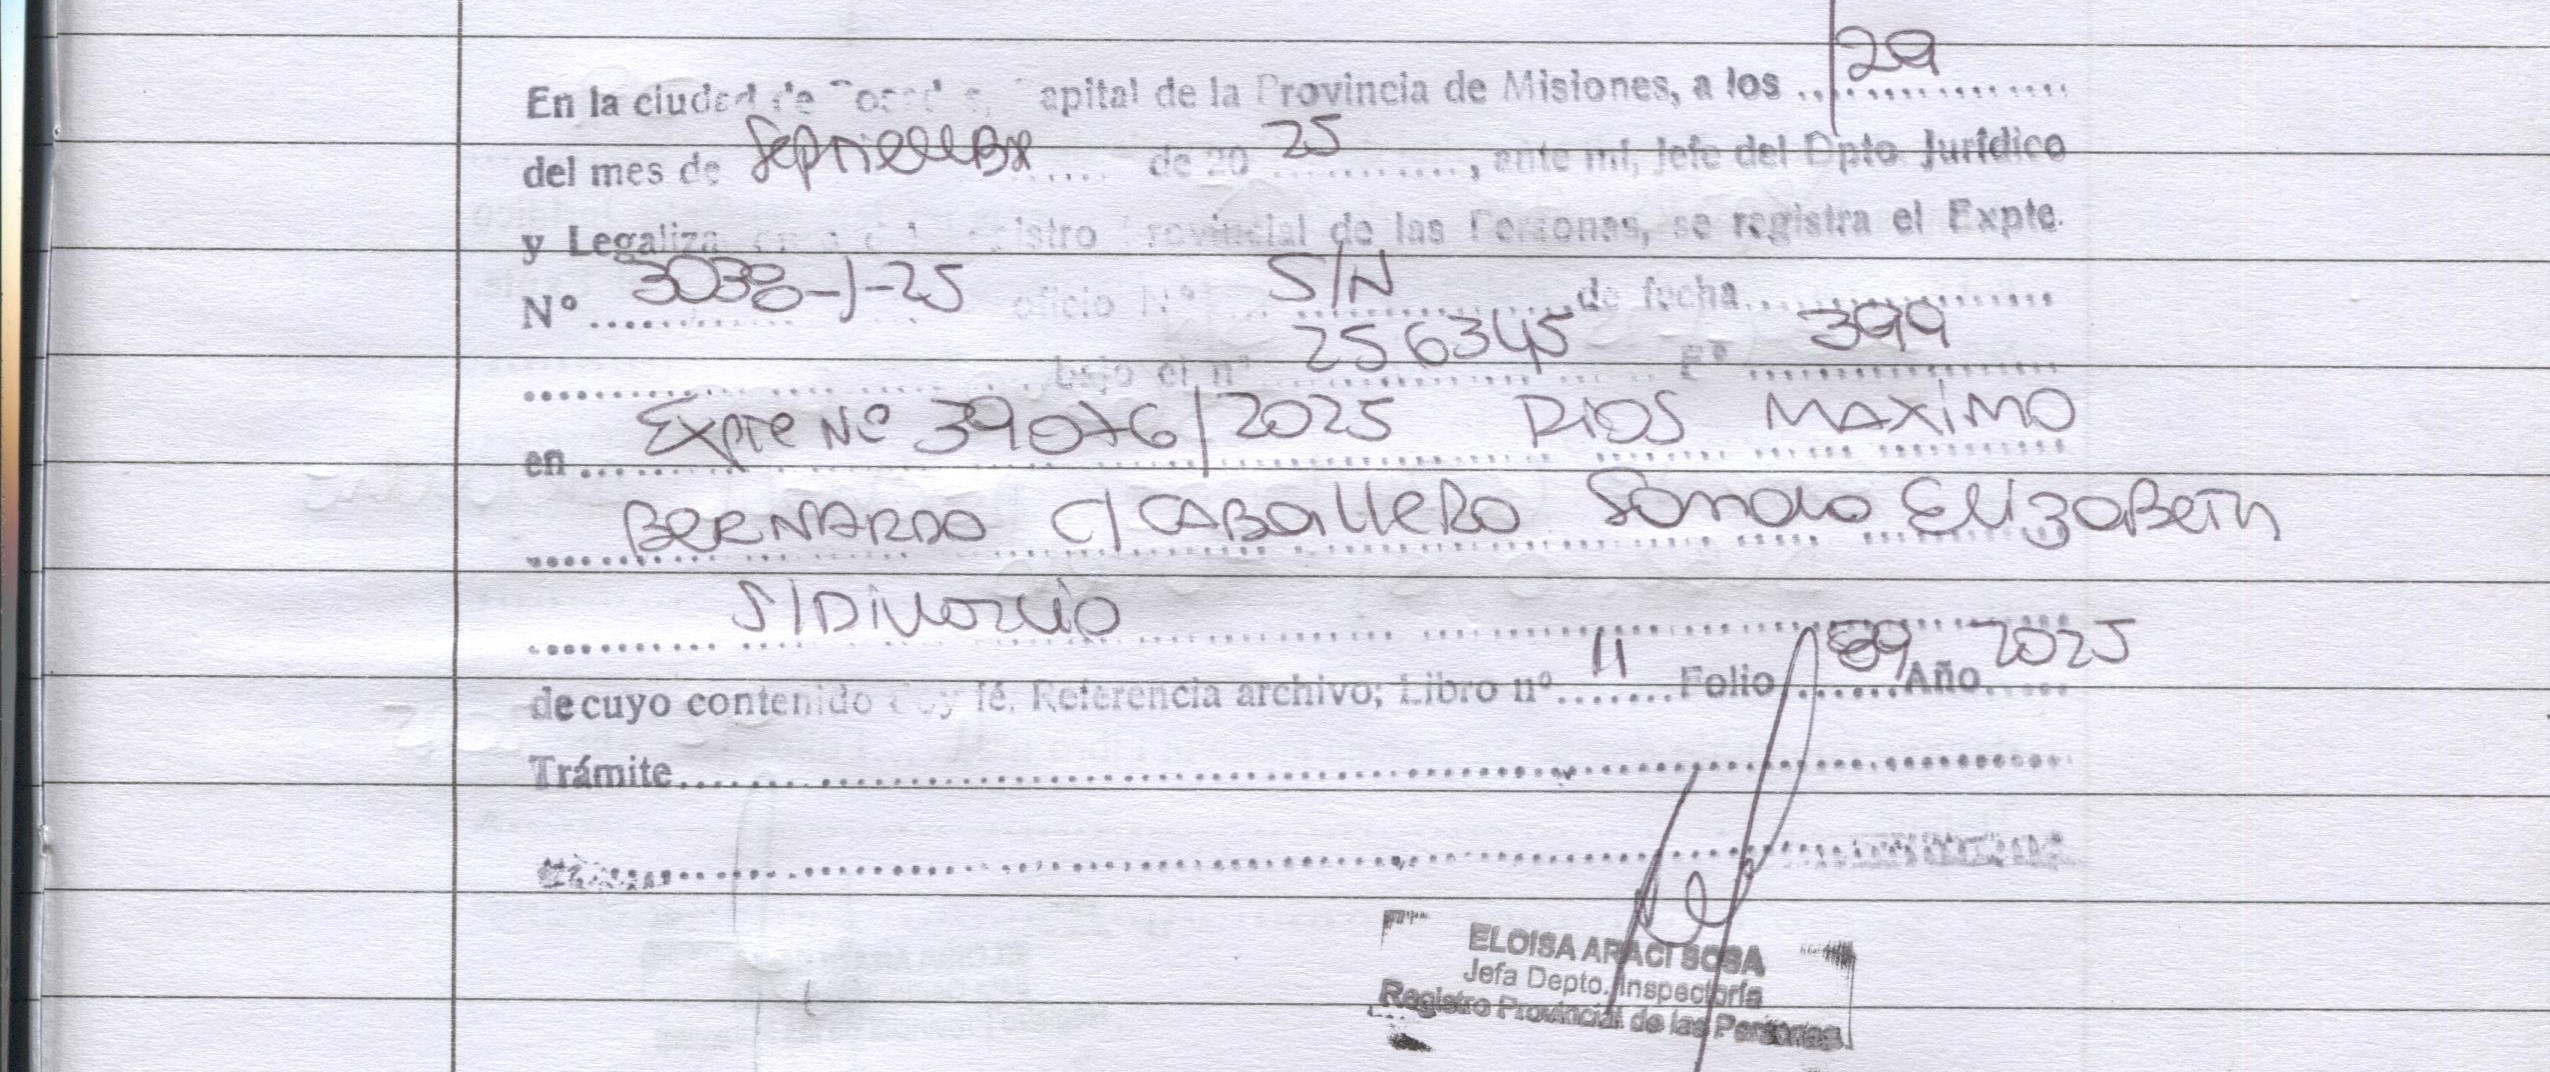 En la ciudad de Posadas, Capital de la Provincia de Misiones, a los 29
del mes de Septiembre de 20 25, ante mi, Jefe del Dpto. Jurídico
y Legaliza registro Provincial de las Personas, se registra el Expte.
Nº 3038-J-25 oficio Nº S/N de fecha
bajo el nº 256345 Fº 399
en Expte Nº 39076/2025 RIOS MAXIMO
BERNARDO C/ CABALLERO Sandra ElizaBeth
S/Divorcio
de cuyo contenido doy fé. Referencia archivo; Libro nº 11 Folio 89 Año 2025
Trámite
ELOISA ARACI SOSA
Jefa Depto. Inspectoría
Registro Provincial de las Personas